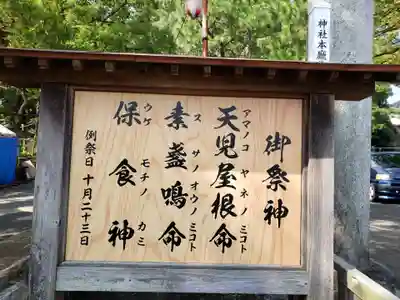 御祭神
天児屋根命
アマノコ ヤネノ ミコト
素盞鳴命
スサノオウノ ミコト
保食神
ウケ モチノ カミ
例祭日 十月二十三日
神社本廳